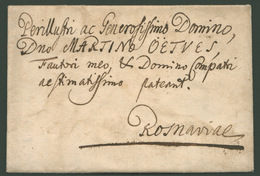 Perillustri ac Generosissimo Domino,
Dno MARTINO ÖETVES,
Fautori meo, & Domino Compatri
aestimatissimo pateant.
Rosnaviae